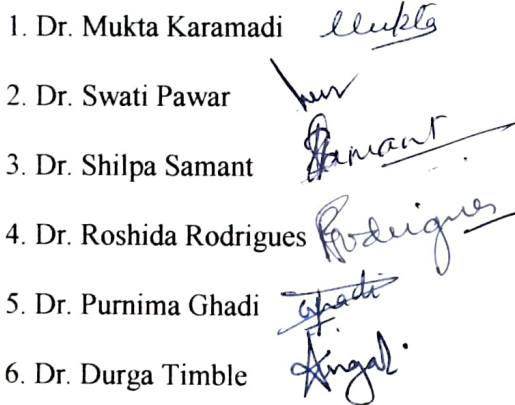 1. Dr. Mukta Karamadi Mukta
2. Dr. Swati Pawar
3. Dr. Shilpa Samant Samant
4. Dr. Roshida Rodrigues Rodrigues
5. Dr. Purnima Ghadi Ghadi
6. Dr. Durga Timble